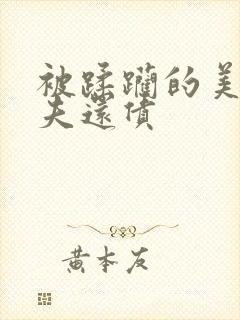 被蹂躏的美
夫還债
黄本友